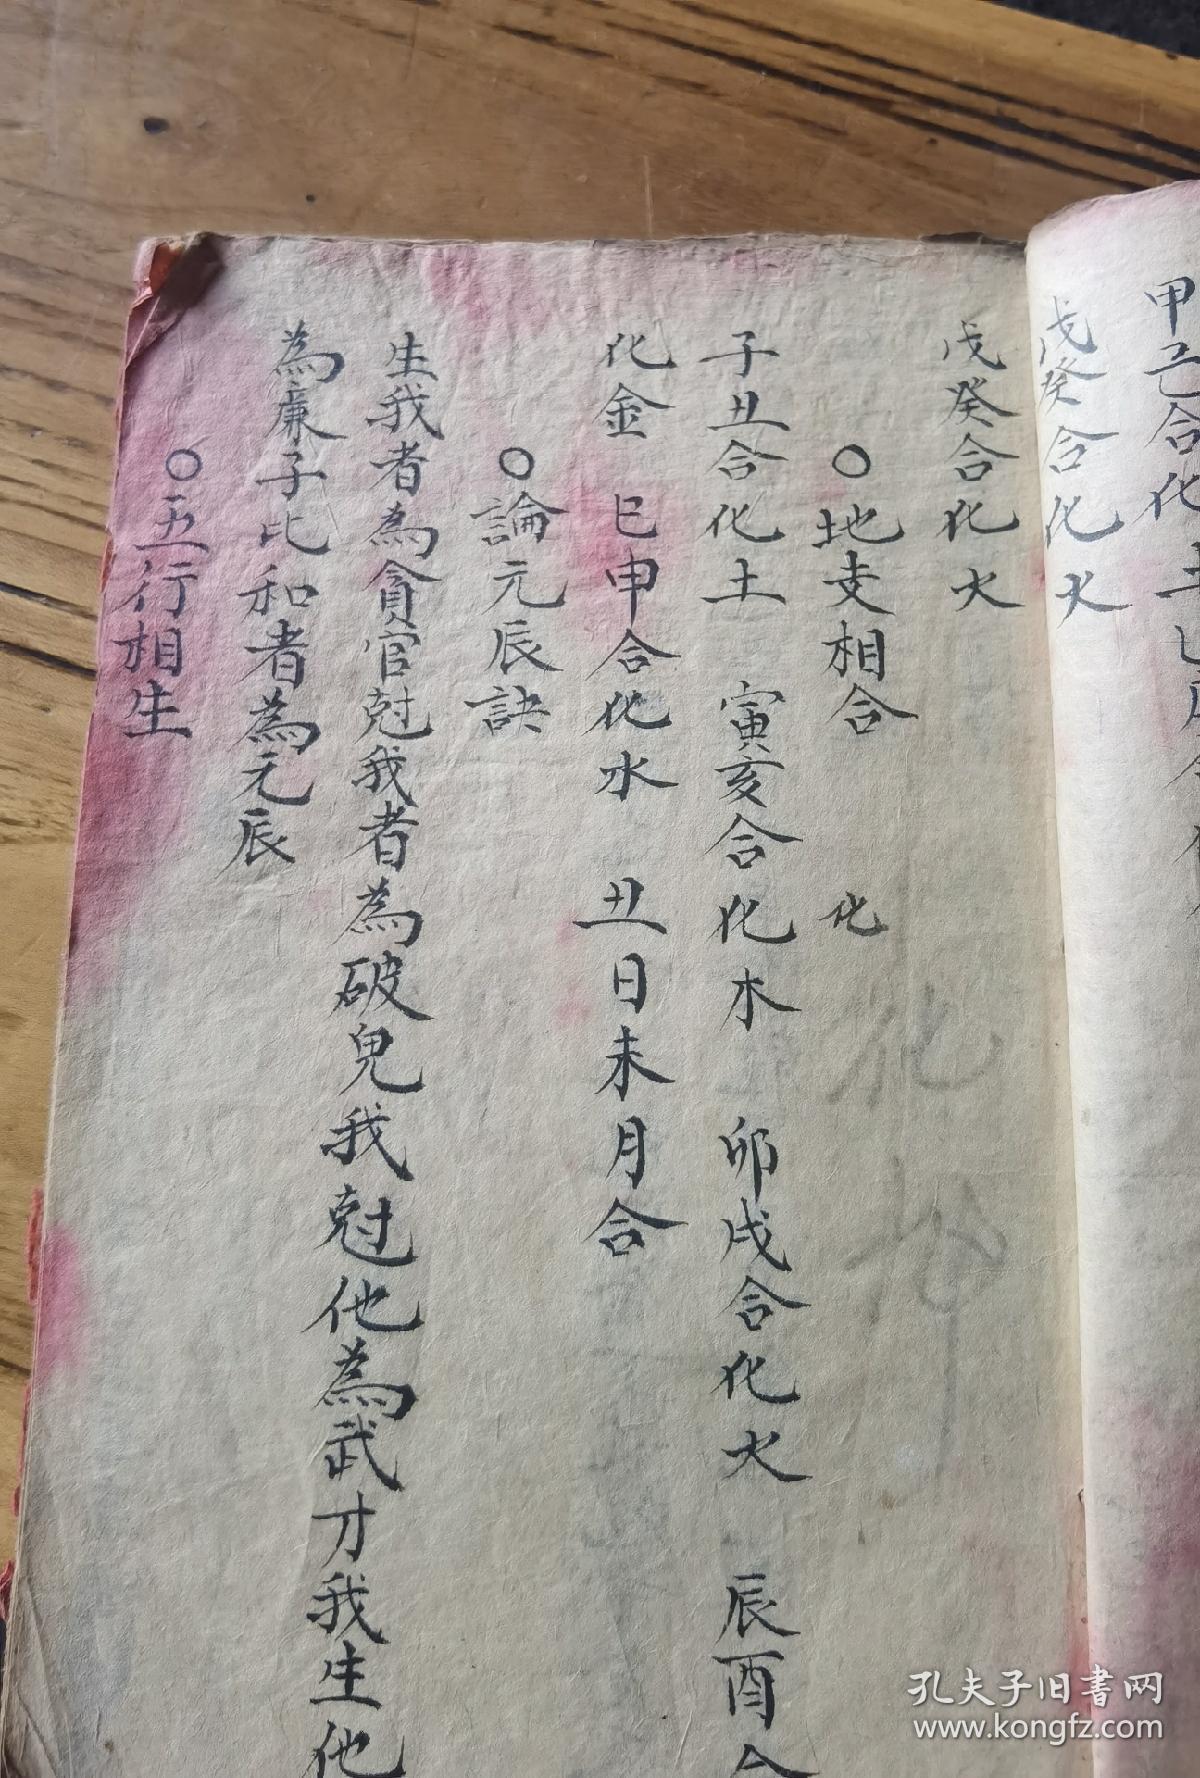 甲己合化土
戊癸合化火
戊癸合化火
○地支相合 化
子丑合化土 寅亥合化木 卯戌合化火 辰酉合
化金 巳申合化水 丑日未月合
○論元辰訣
生我者為貪官尅我者為破鬼我尅他為武才我生他
為廉子比和者為元辰
○五行相生
孔夫子旧書网
www.kongfz.com